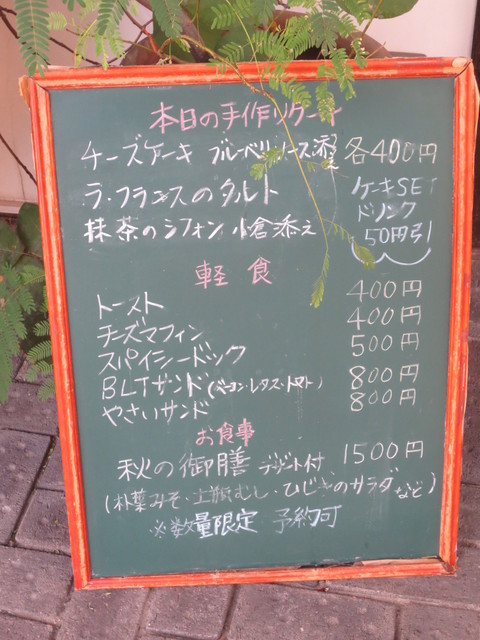 本日の手作りケーキ
チーズケーキ ブルーベリーソース添 各400円
ラ・フランスのタルト
抹茶のシフォン 小倉添え
ケーキSET
ドリンク
50円引
軽食
トースト 400円
チーズマフィン 400円
スパイシードック 500円
BLTサンド(ベーコン・レタス・トマト) 800円
やさいサンド 800円
お食事
秋の御膳 デザート付 1500円
(朴葉みそ・土瓶むし・ひじきのサラダなど)
※数量限定 予約可